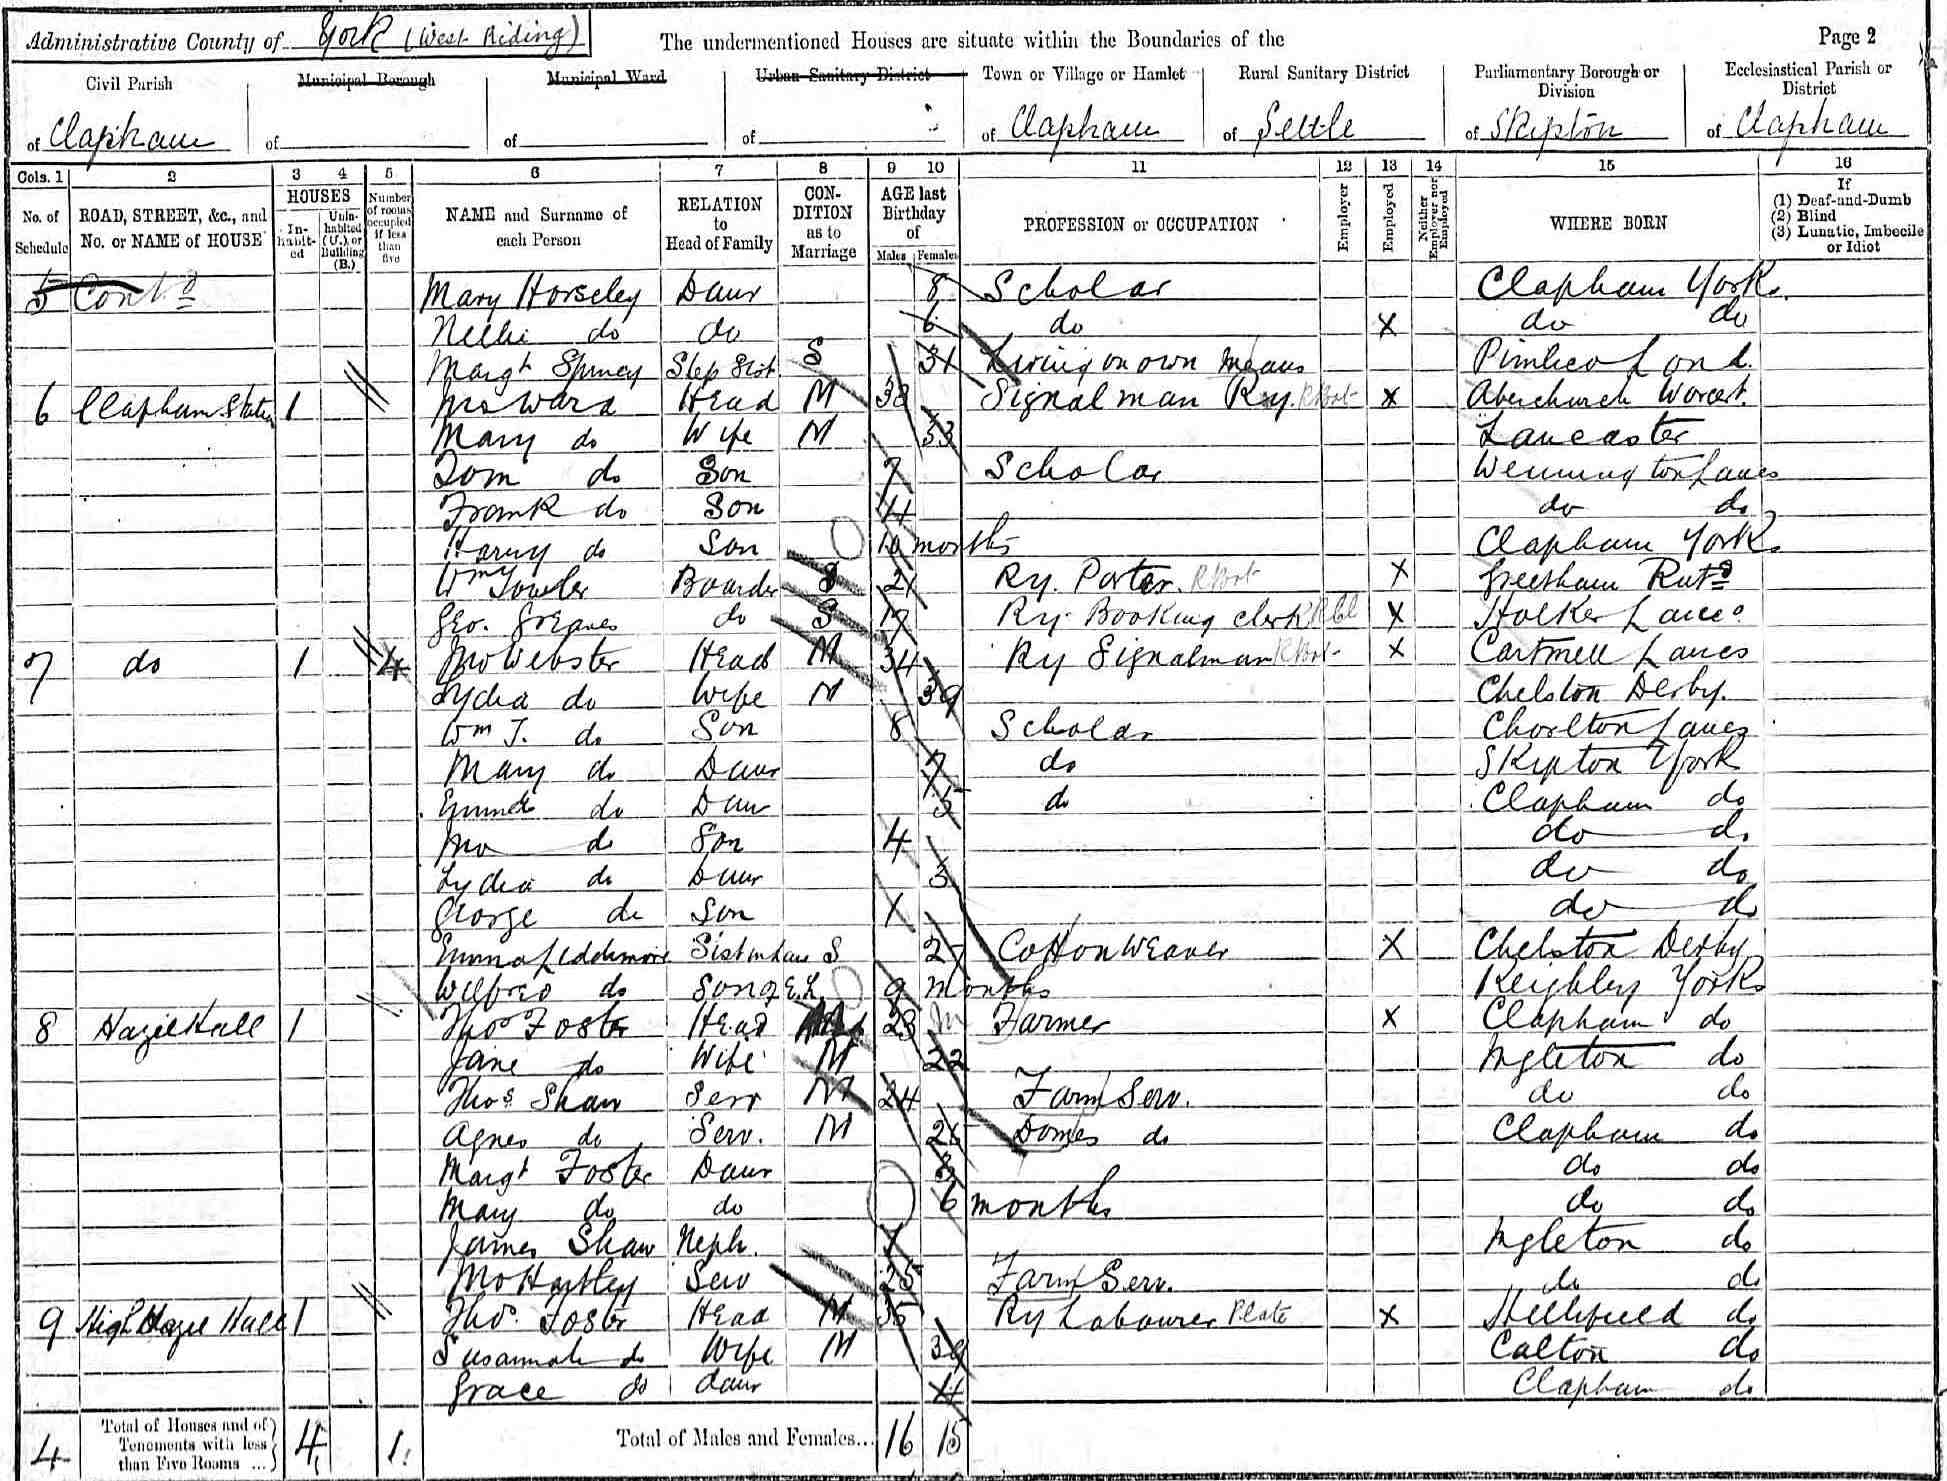 Administrative County of York (West Riding) The undermentioned Houses are situate within the Boundaries of the Page 2
Civil Parish Municipal Borough Municipal Ward Urban Sanitary District Town or Village or Hamlet Rural Sanitary District Parliamentary Borough or Division Ecclesiastical Parish or District
of Clapham of of of of Clapham of Settle of Skipton of Clapham
Cols. 1 2 3 4 5 6 7 8 9 10 11 12 13 14 15 16
No. of Schedule ROAD, STREET, &c., and No. or NAME of HOUSE HOUSES In-habit-ed Unin-habited (U.), or Building (B.) Number of rooms occupied if less than five NAME and Surname of each Person RELATION to Head of Family CON-DITION as to Marriage AGE last Birthday of Males Females PROFESSION or OCCUPATION Employer Employed Neither Employer nor Employed WHERE BORN If (1) Deaf-and-Dumb (2) Blind (3) Lunatic, Imbecile or Idiot
5 Contd Mary Horseley Daur 8 Scholar Clapham Yorks
Nellie do do 6 do X do do
Margt Step Sist. S 31 Living on own means Pimlico Lond.
6 Clapham Station 1 Jno Ward Head M 38 Signalman Ry. X Aberchurch Worcest.
Mary do Wife M 33 Lancaster
Tom do Son 7 Scholar Wennington Lancs
Frank do Son 4 do do
Harry do Son 10 months Clapham Yorks
Wm Towler Boarder S 21 Ry. Porter X Greetham Rutd
Geo. Greaves do S 17 Ry. Booking Clerk X Holker Lanco
7 do 1 4 Jno Webster Head M 34 Ry Signalman X Cartmell Lancs
Lydia do Wife M 39 Chelston Derby.
Wm T. do Son 8 Scholar Chorlton Lancs
Mary do Daur 7 do Skipton York
Emma do Daur 5 do Clapham do
Jno do Son 4 do do
Lydia do Daur 3 do do
George do Son 1 do do
Emma Leddimore Sist in law S 27 Cotton Weaver X Chelston Derby
Wilfred do Son of E.L. 9 months Keighley Yorks
8 Hazel Hall 1 Thos Foster Head 23 Farmer X Clapham do
Jane do Wife M 22 Ingleton do
Thos Shaw Serv M 24 Farm Serv. do do
Agnes do Serv. M Domes do Clapham do
Margt Foster Daur do do
Mary do do 6 months do do
James Shaw Neph. 1 Ingleton do
Jno Hartley Serv 25 Farm Serv. do do
9 High Hazel Hall 1 Thos. Foster Head M 35 Ry Labourer Plate X Hellifield do
Susannah do Wife M 39 Calton do
Grace do daur 4 Clapham do
4 Total of Houses and of Tenements with less than Five Rooms ... 4 1 Total of Males and Females... 16 15